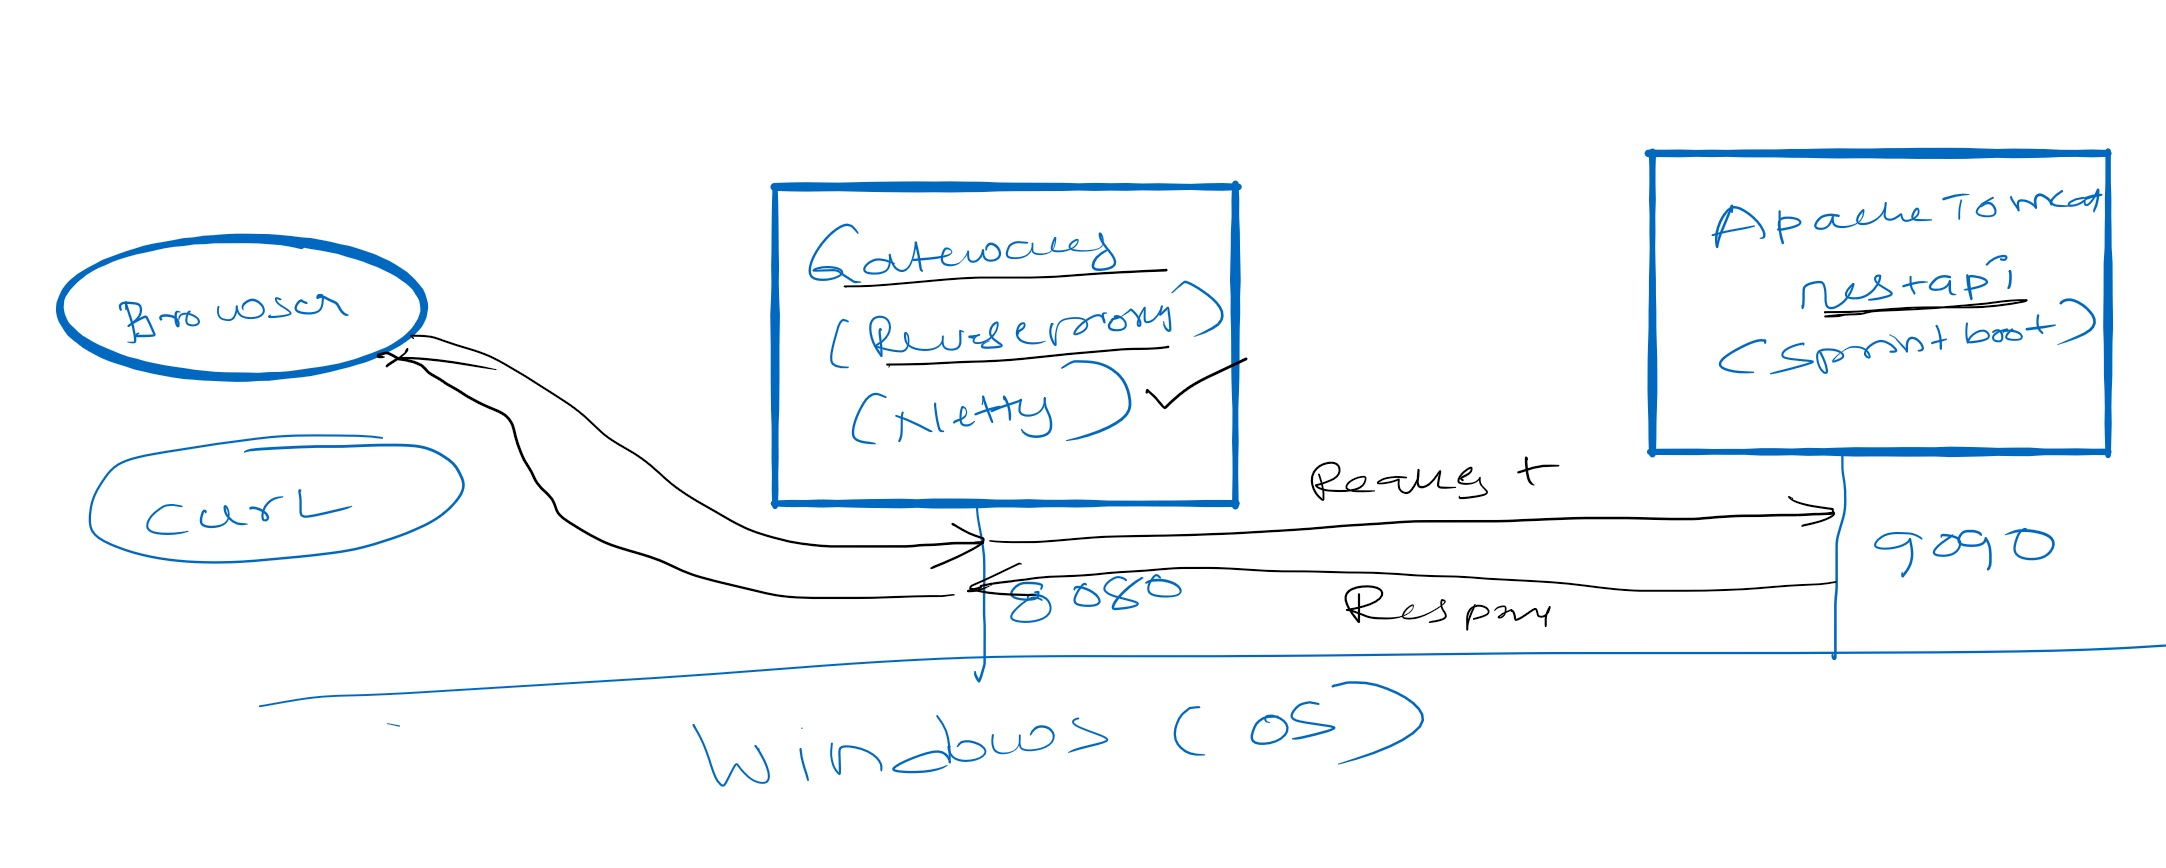 Browser
curL
Gateway
(Reverseproxy)
(Netty)
Apache Tomcat
restapi
(Sprint boot)
Request
8080
9090
Respon
Windows (OS)